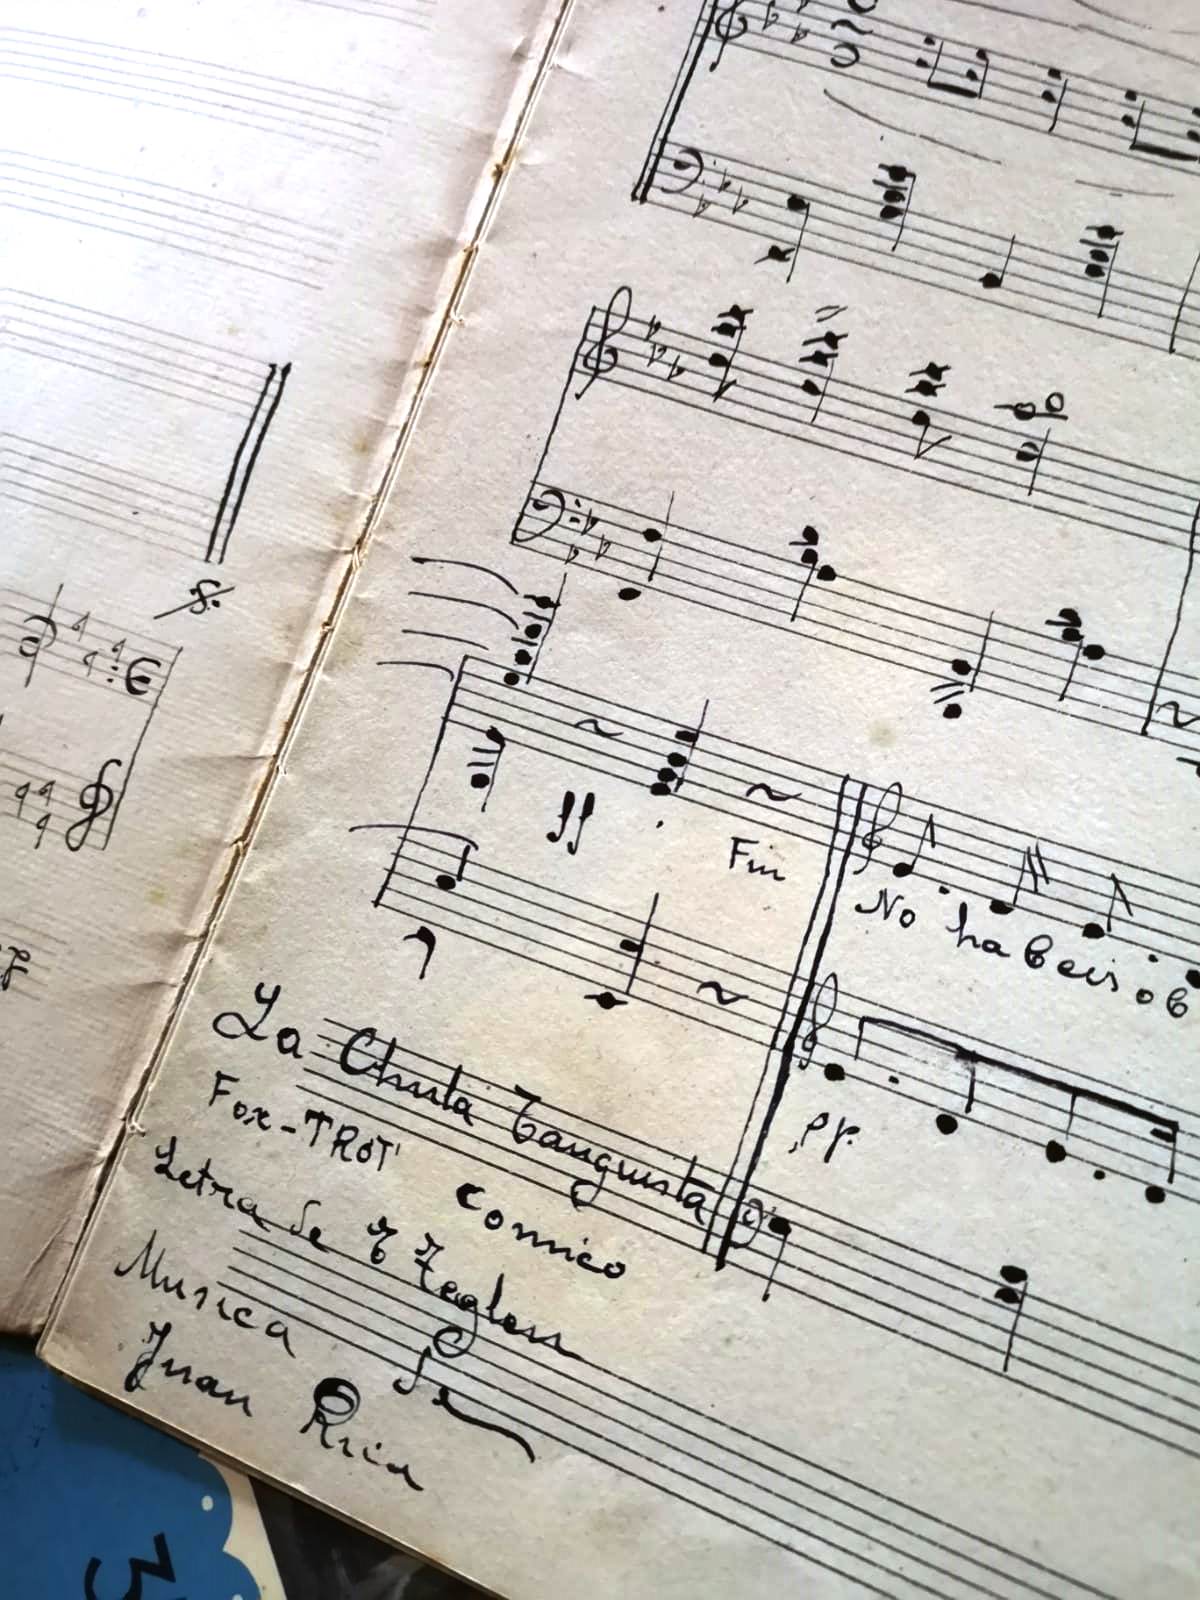 ff
Fin
No habeis ob
pp.
La Chula Tanguista
Fox-TROT
comico
Letra de
Musica de
Juan Rica
3